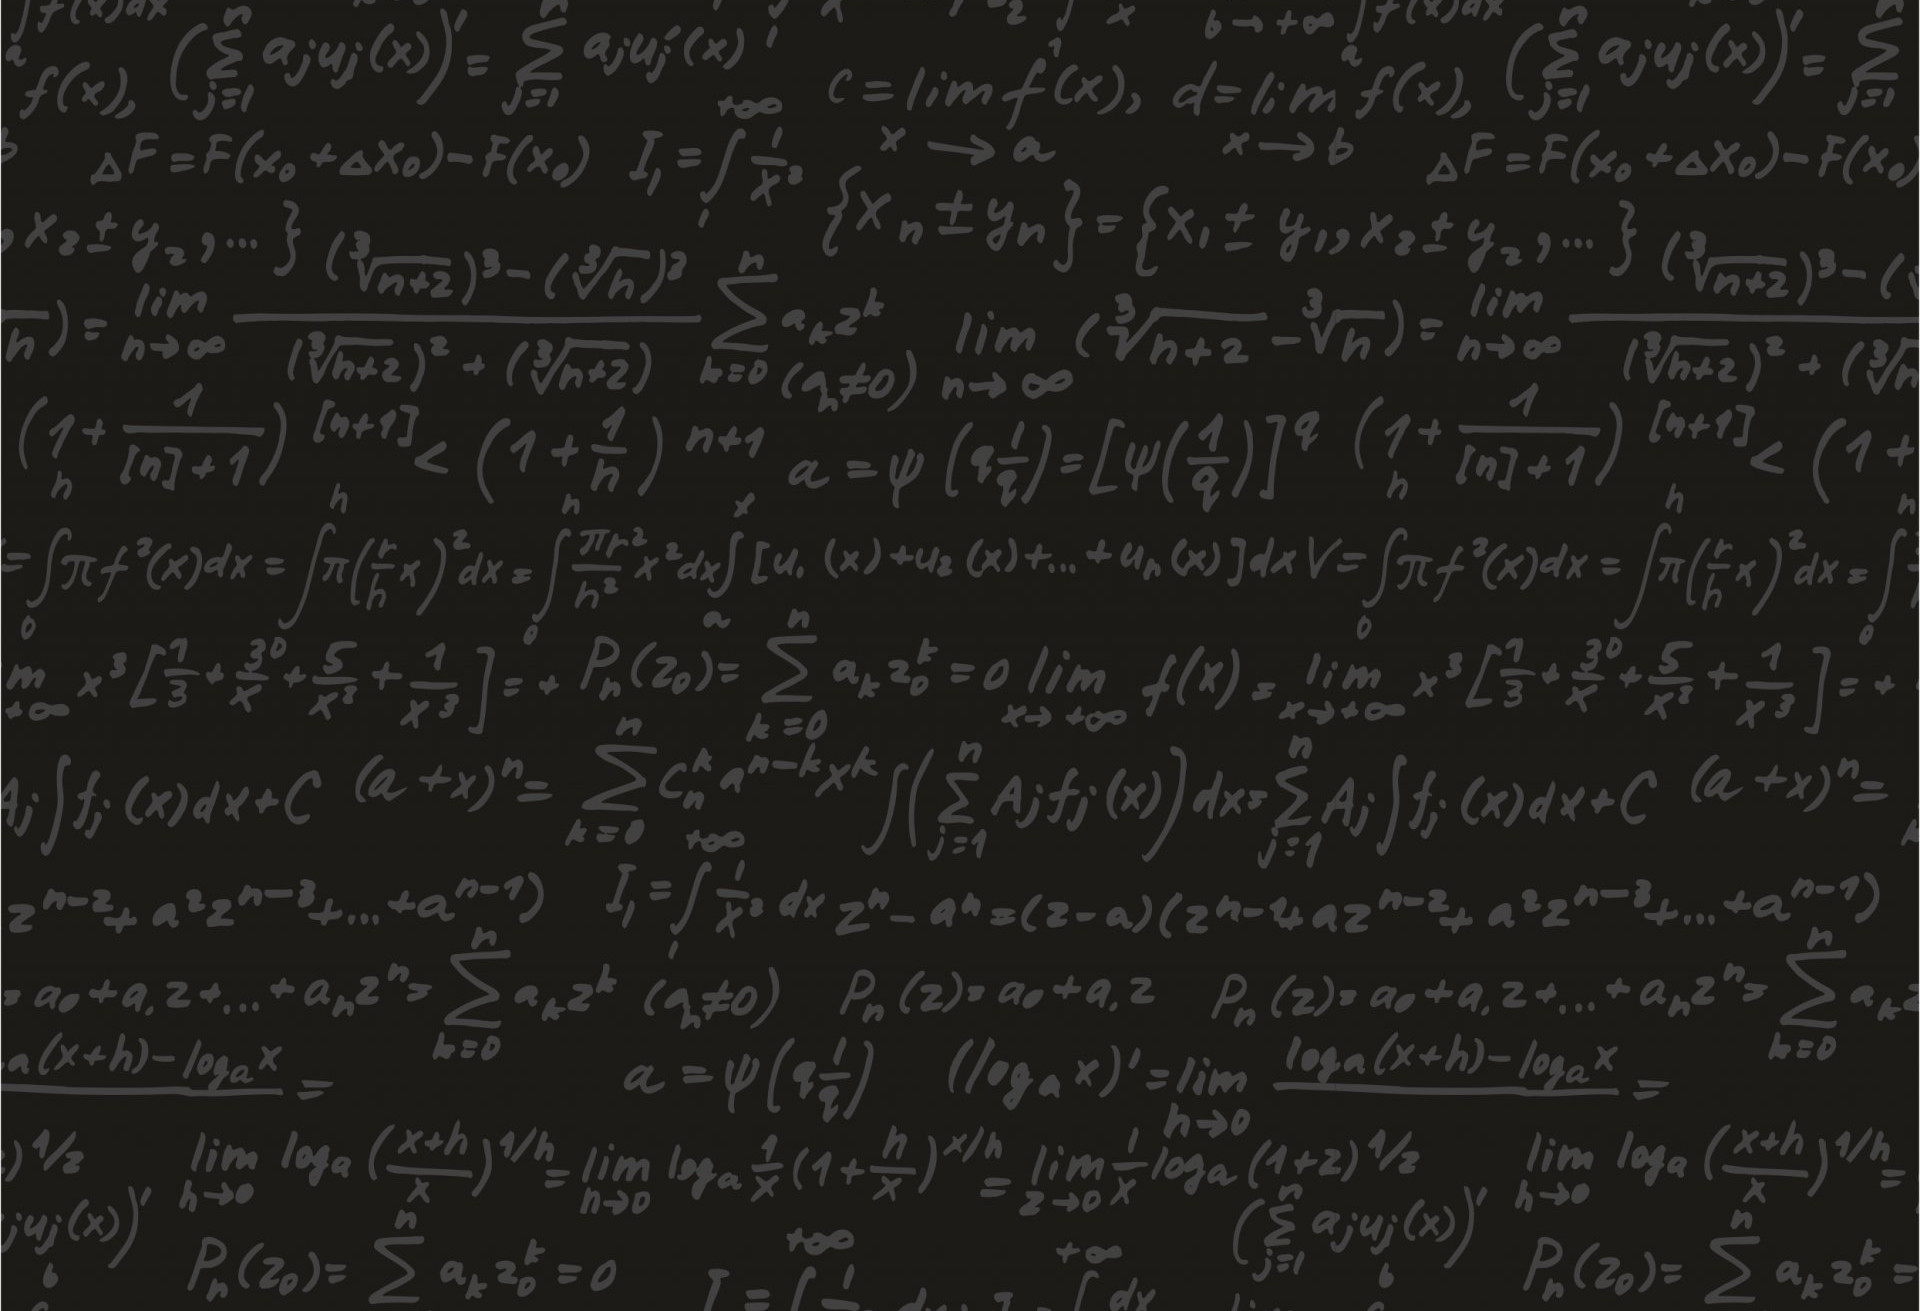 ∫f(x)dx b→+∞ ∫f(x)dx
a a
f(x), (∑ⁿⱼ₌₁ aⱼuⱼ(x))' = ∑ⁿⱼ₌₁ aⱼuⱼ'(x) c=lim f(x), d=lim f(x), (∑ⁿⱼ₌₁ aⱼuⱼ(x))' = ∑ⁿⱼ₌₁
x→a x→b
b ΔF=F(x₀+Δx₀)-F(x₀) I₁=∫₁^{+∞} 1/x² ΔF=F(x₀+Δx₀)-F(x₀)
x₂±y₂,...} {xₙ±yₙ}={x₁±y₁, x₂±y₂,...}
n) = lim n→∞ ((∛n+2)³-(∛n)³)/((∛n+2)²+(∛n+2) ∑ⁿₖ₌₀ aₖzᵏ (aₙ≠0) lim n→∞ (∛n+2 - ∛n) = lim n→∞ (∛n+2)³-( / (∛n+2)²+(∛n
(1+1/([n]+1))^[n+1] < (1+1/n)^n+1 a=ψ(q 1/q)=[ψ(1/q)]^q (1+1/([n]+1))^[n+1] < (1+
=∫₀ʰ πf²(x)dx = ∫ʰ π(r/h x)²dx = ∫₀ʰ πr²/h² x²dx ∫ₐˣ [u₁(x)+u₂(x)+...+uₙ(x)]dx V=∫₀ʰ πf²(x)dx = ∫ʰ π(r/h x)²dx = ∫₀ʰ
m +∞ x³[1/3+30/x+5/x²+1/x³]=+ Pₙ(z₀)=∑ⁿₖ₌₀ aₖz₀ᵏ=0 lim x→+∞ f(x) = lim x→+∞ x³[1/3+30/x+5/x²+1/x³]=+
Aⱼ∫fⱼ(x)dx+C (a+x)ⁿ= ∑ⁿₖ₌₀ Cₙᵏ aⁿ⁻ᵏ xᵏ ∫(∑ⁿⱼ₌₁ Aⱼfⱼ(x))dx=∑ⁿⱼ₌₁ Aⱼ∫fⱼ(x)dx+C (a+x)ⁿ=
zⁿ⁻²+a²zⁿ⁻³+...+aⁿ⁻¹) I₁=∫₁^{+∞} 1/x² dx zⁿ-aⁿ=(z-a)(zⁿ⁻¹+azⁿ⁻²+a²zⁿ⁻³+...+aⁿ⁻¹)
=a₀+a₁z+...+aₙzⁿ=∑ⁿₖ₌₀ aₖzᵏ (aₙ≠0) Pₙ(z)=a₀+a₁z Pₙ(z)=a₀+a₁z+...+aₙzⁿ=∑ⁿₖ₌₀ aₖz
a(x+h)-logₐx = a=ψ(q 1/q) (logₐx)'=lim h→0 (logₐ(x+h)-logₐx) =
)^1/2 lim h→0 logₐ((x+h)/x)^1/h = lim n→0 logₐ 1/x (1+h/x)^x/h = lim z→0 1/x logₐ(1+z)^1/2 lim h→0 logₐ((x+h)/x)^1/h =
ⱼuⱼ(x))' (∑ⁿⱼ₌₁ aⱼuⱼ(x))'
b Pₙ(z₀)=∑ⁿ aₖz₀ᵏ=0 +∞ +∞ b Pₙ(z₀)=∑ⁿ aₖz₀ᵏ=